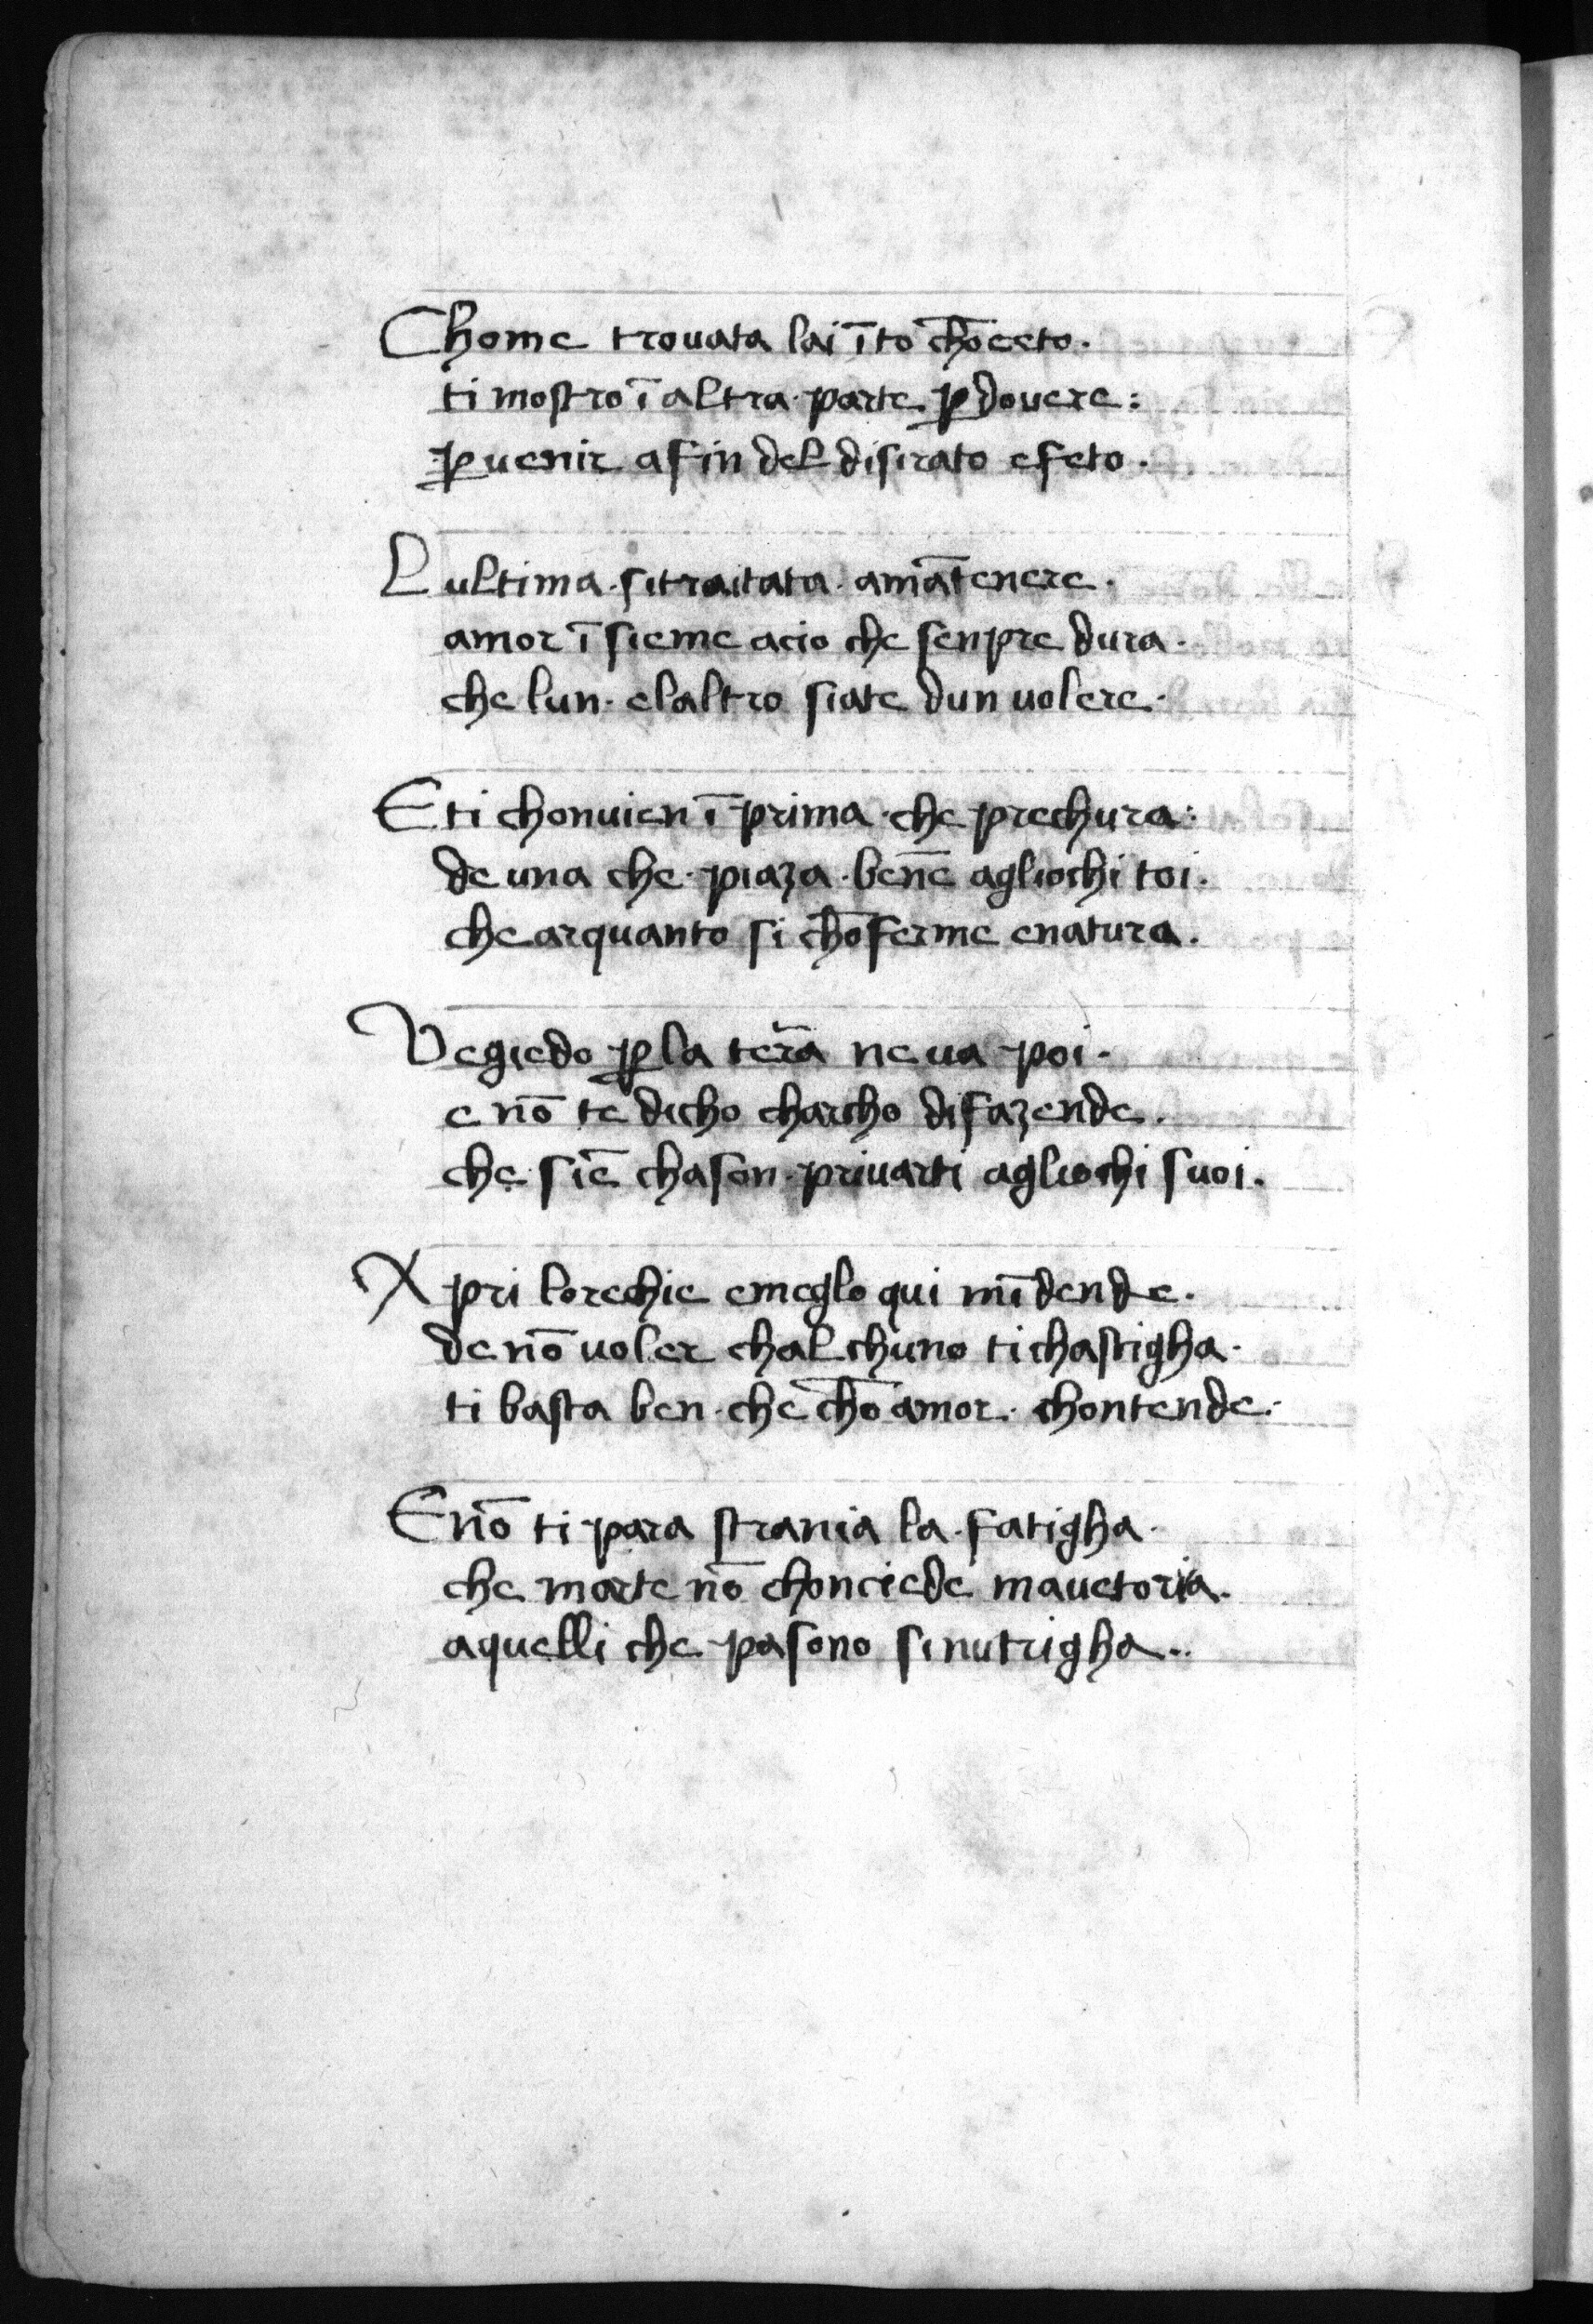 Chome trouata lai ĩ to cħoceto.
ti mostro ĩ altra· parte ꝑ douere:
ꝑ uenir a fin del disirato efeto.
L ultima· si traitata· amãtenere·
amor ĩ sieme acio che senpre dura·
che lun· elaltro siate dun uolere·
E ti chonuien ĩ prima· che prechura:
de una che· piaza· bene̅ agliochi toi·
che arquanto si cħoferme enatura.
Vegiedo ꝑ la tera̅ ne ua poi·
e nõ te̅ dicho charcho di fazende.
che· sie̅ chason· priuarti agliochi suoi.
Apri lorechie emeglo qui mĩdende.
de nõ uoler chal chuno ti chastigha·
ti basta ben· che cħo amor· chontende·
E nõ ti para strania la· fatigha·
che morte nõ chonciede ma uetoria.
aquelli che· pasono si nutrigha..